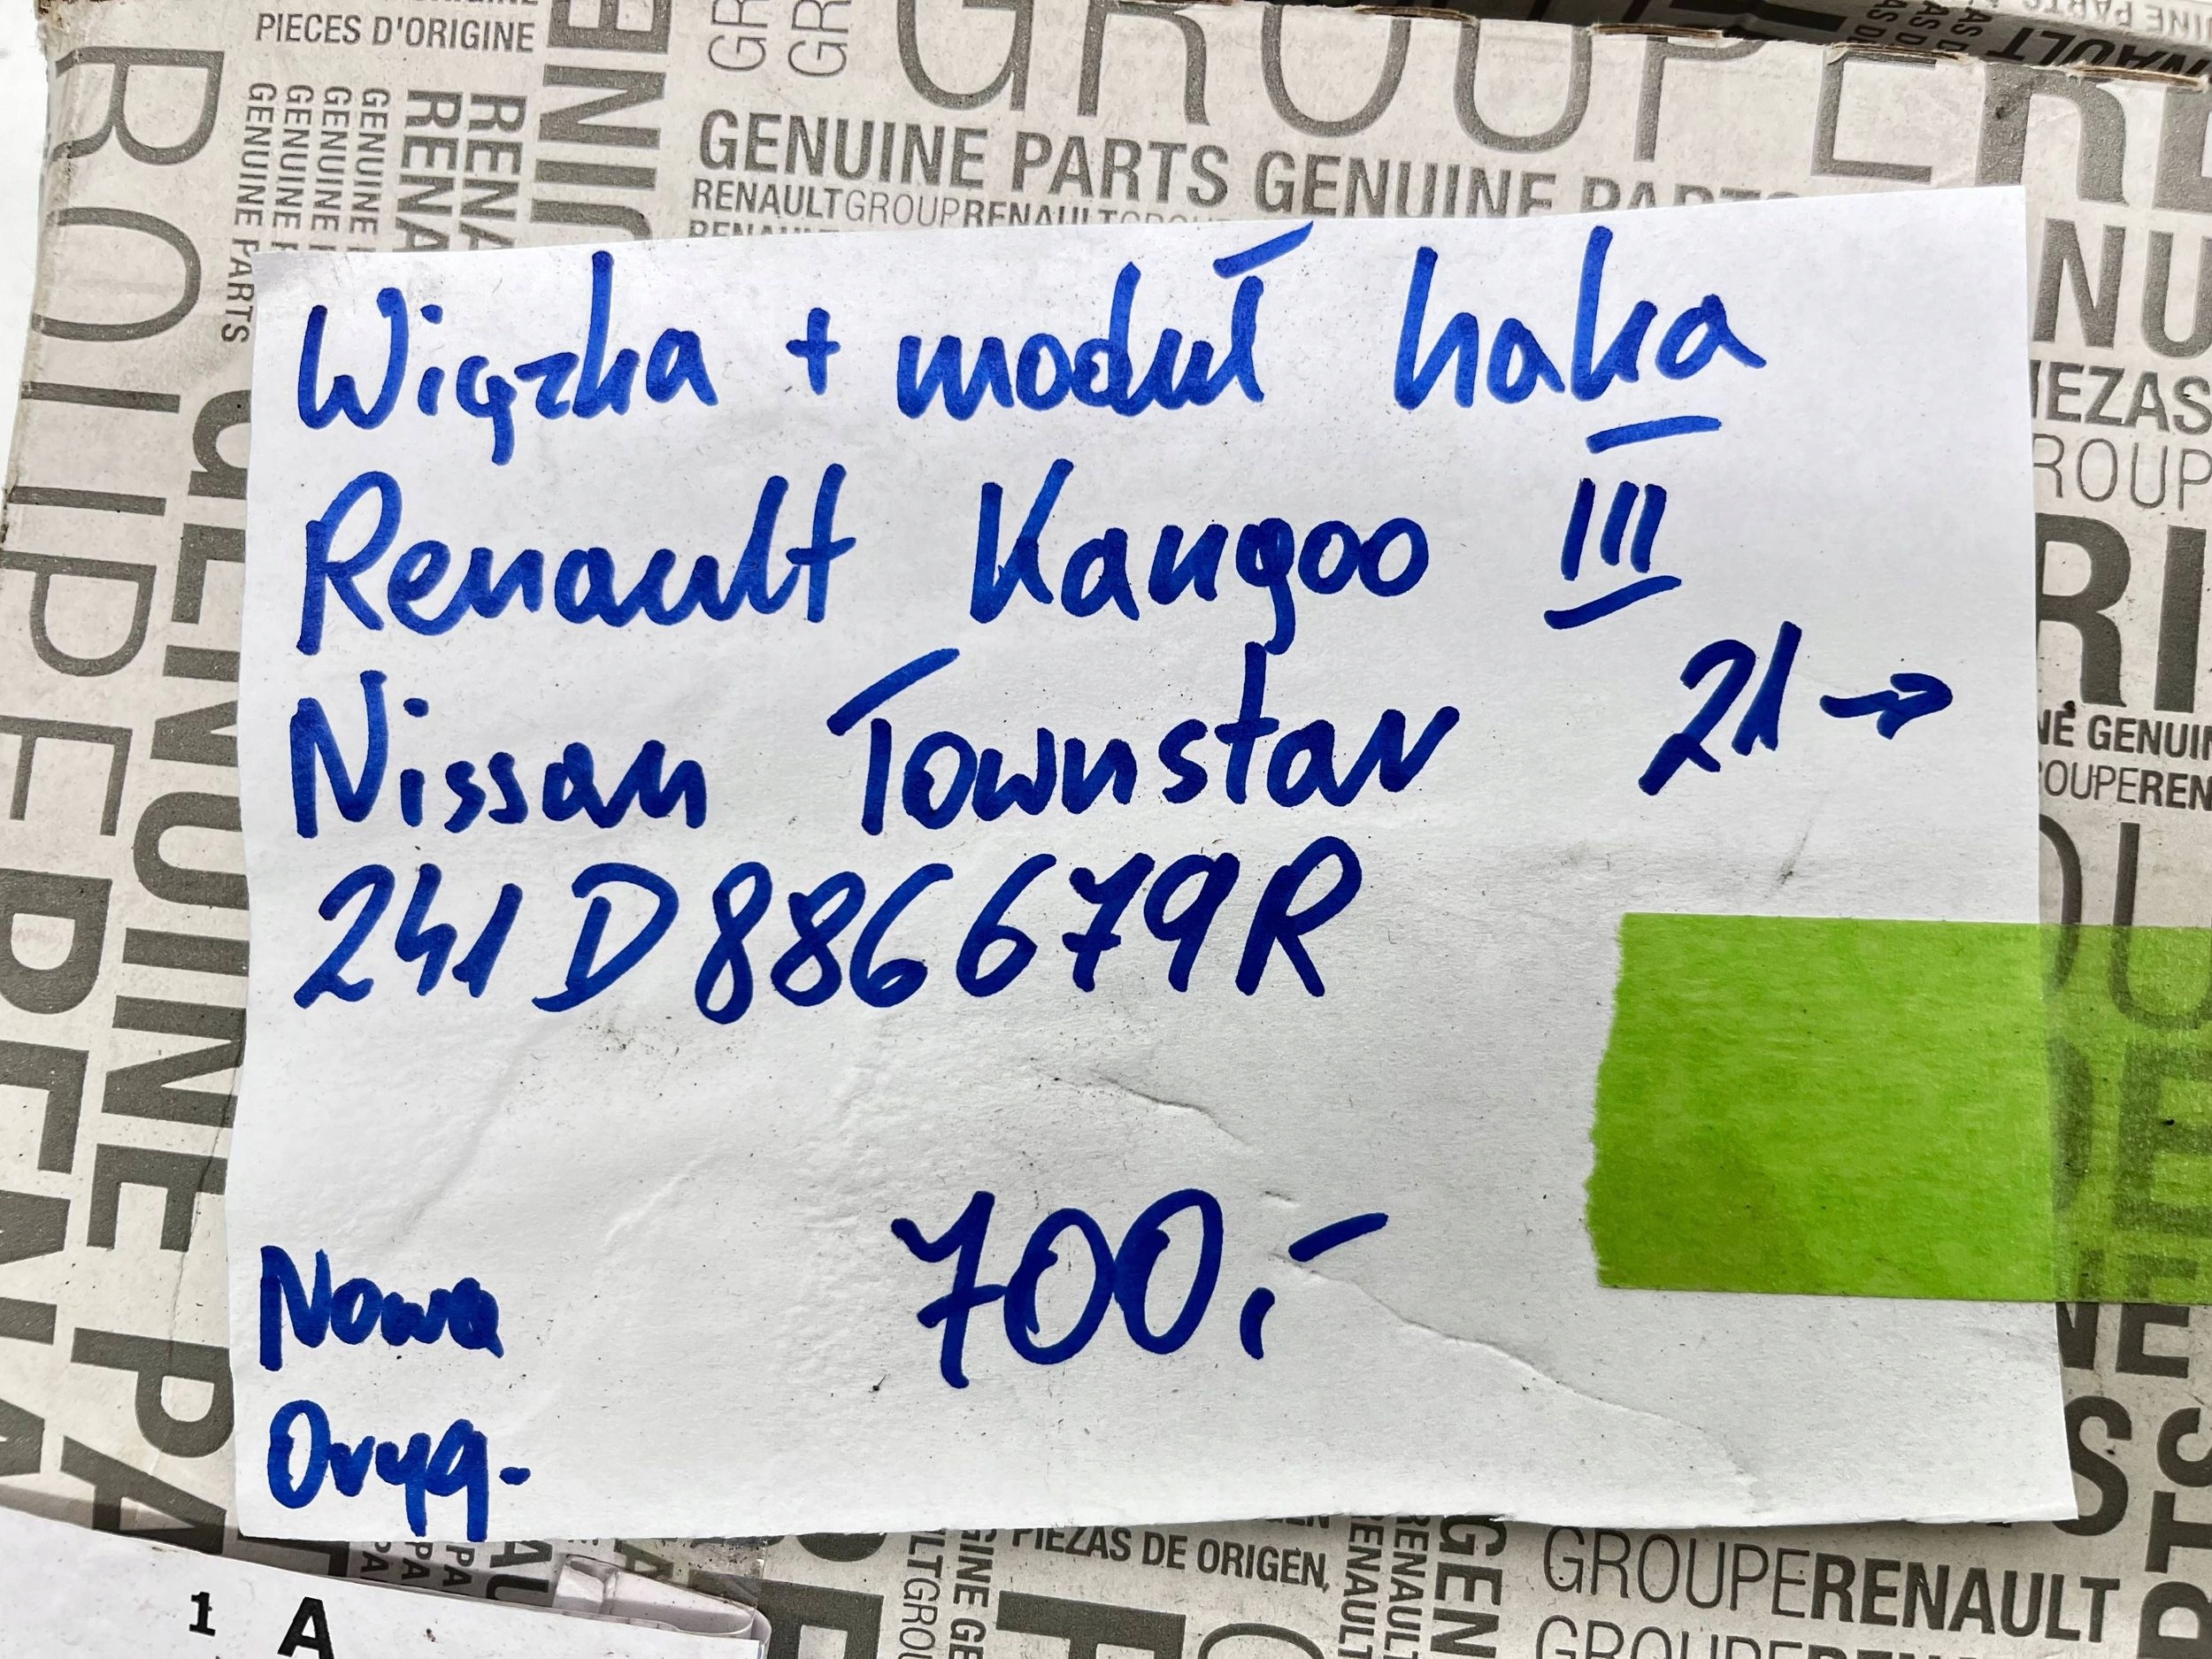 PIECES D'ORIGINE
GENUINE PARTS GENUINE PARTS
RENAULTGROUPRENAULTGROUP
Wiązka + moduł haka
Renault Kangoo III
Nissan Townstar 21→
241D886679R
700,-
Nowa
Oryg.
PIEZAS DE ORIGEN,
GROUPERENAULT
1 A